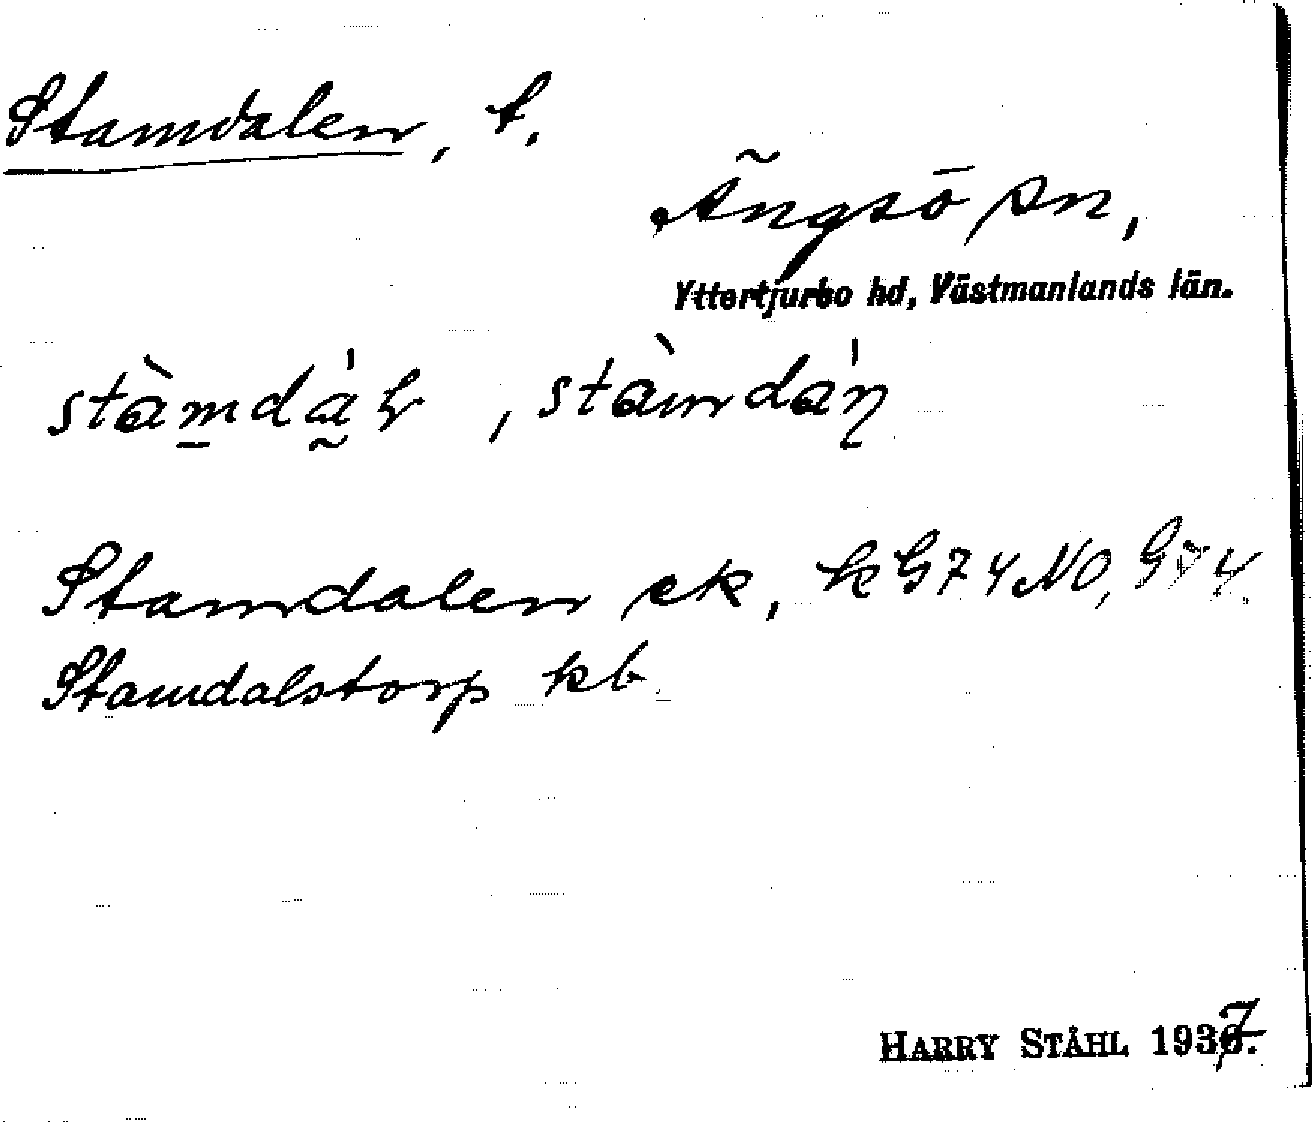 Stamdalen, t.
Ängsö sn,
Yttertjurbo hd, Västmanlands län.
Stamdalen ek, k G74NO, G74.
Stamdalstorp kb
HARRY STÅHL 1937.